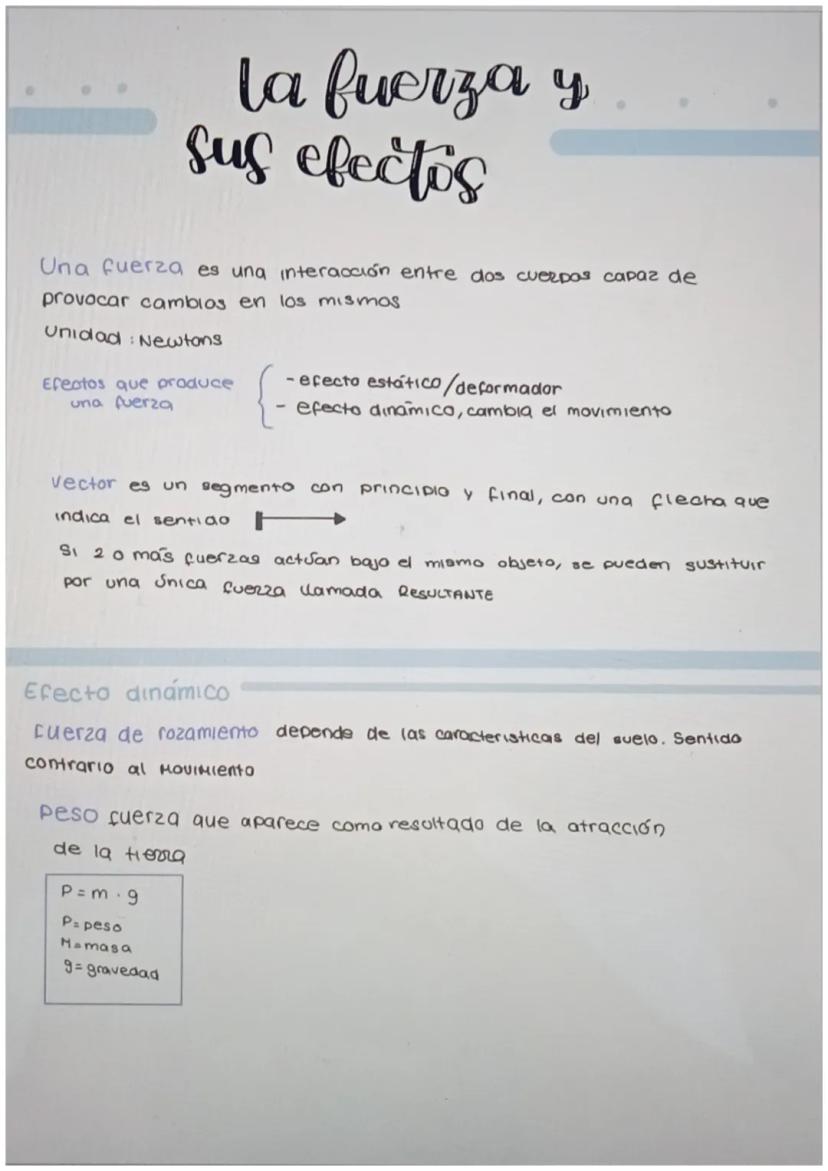 la fuerza y
sus efectos
Una fuerza es una interacción entre dos cuerpos capaz de
provocar cambios en los mismos
Unidad : Newtons
Efectos que produce
una fuerza
- efecto estático/deformador
- efecto dinámico, cambia el movimiento
Vector es un segmento con principio y final, con una flecha que
indica el sentido
Si 2 o más fuerzas actúan bajo el mismo objeto, se pueden sustituir
por una única fuerza llamada RESULTANTE
Efecto dinámico
Fuerza de rozamiento depende de las caracteristicas del suelo. Sentido
contrario al MOVIMIENTO
Peso fuerza que aparece como resultado de la atracción
de la tierra
P = m · g
P = peso
M = masa
g = gravedad